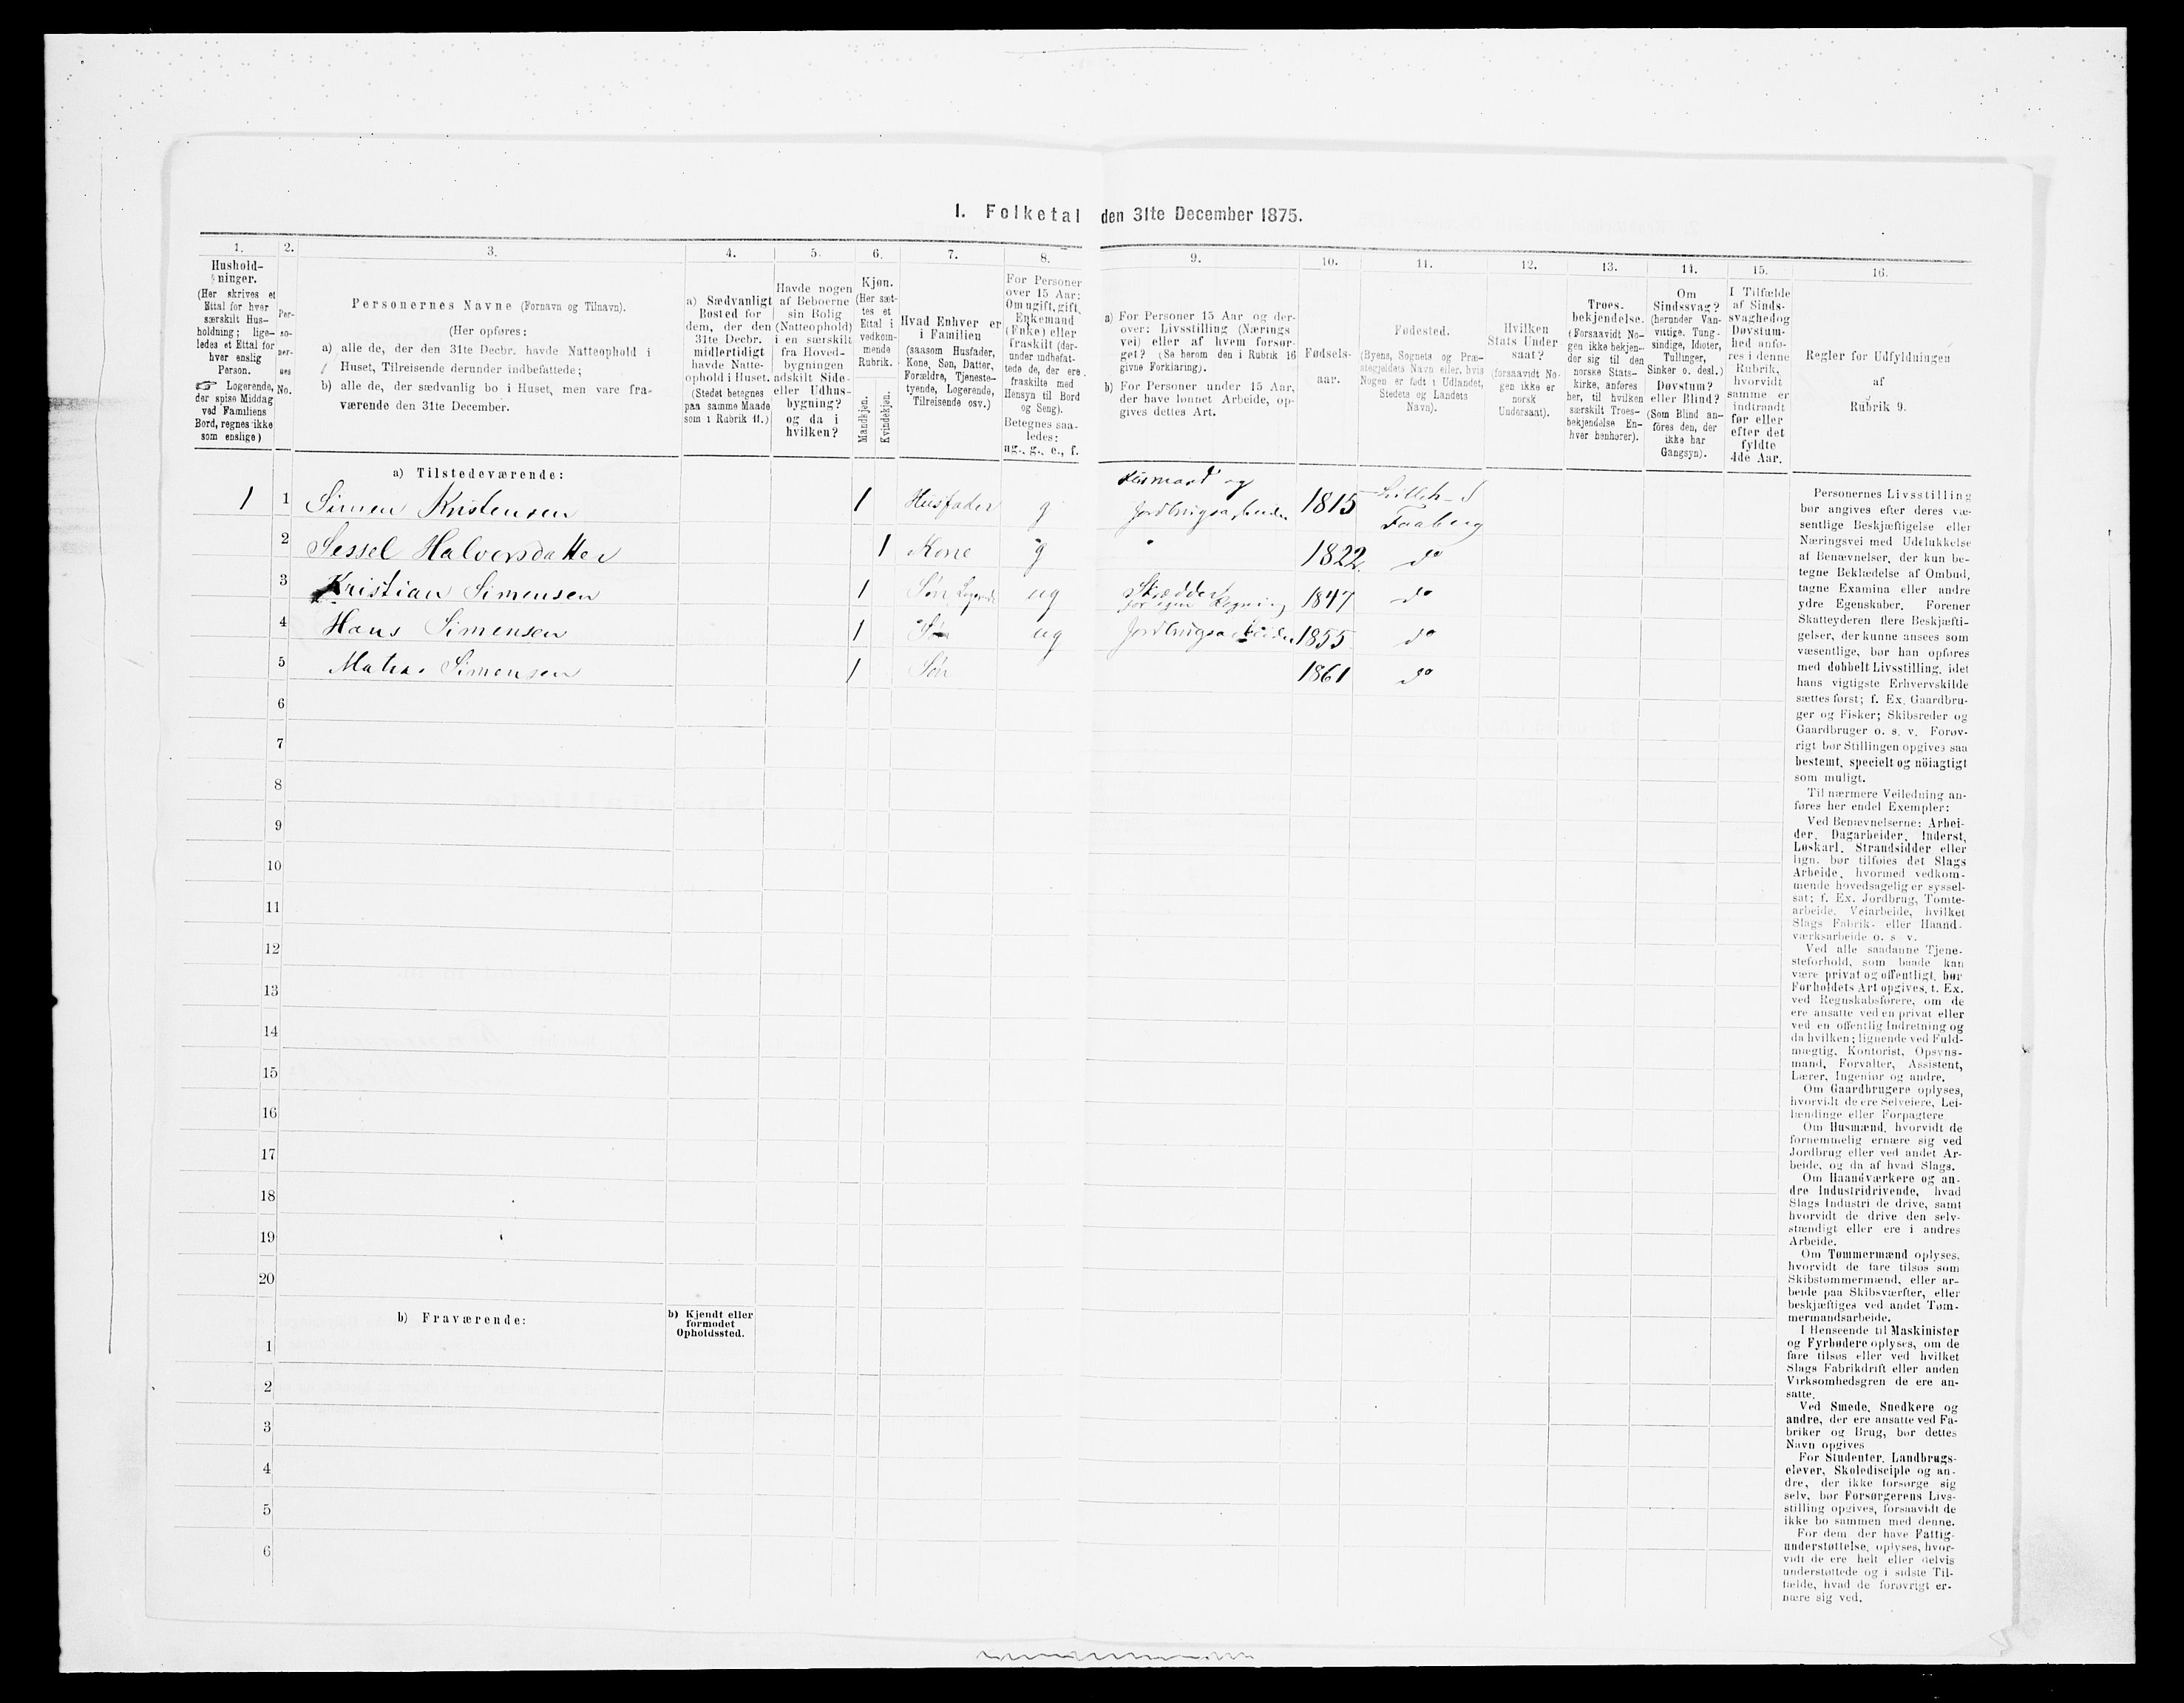 I. Folketal den 31te December 1875.
1.
Hushold-
ninger.
(Her skrives et
Ettal for hver
særskilt Hus-
holdning; lige-
ledes et Ettal for
hver enslig
Person.
☞ Logerende,
der spise Middag
ved Familiens
Bord, regnes ikke
som enslige)
2.
Per-
so-
ner-
nes
No.
3.
Personernes Navne (Fornavn og Tilnavn).
(Her opføres:
a) alle de, der den 31te Decbr. havde Natteophold i
Huset, Tilreisende derunder indbefattede;
b) alle de, der sædvanlig bo i Huset, men vare fra-
værende den 31te December.
4.
a) Sædvanligt
Bosted for
dem, der den
31te Decbr.
midlertidigt
havde Natte-
ophold i Huset.
(Stedet betegnes
paa samme Maade
som i Rubrik 11.)
5.
Havde nogen
af Beboerne
sin Bolig
(Natteophold)
i en særskilt
fra Hoved-
bygningen
adskilt Side-
eller Udhus-
bygning?
og da i
hvilken?
6.
Kjøn.
(Her sæt-
tes et
Ettal i
vedkom-
mende
Rubrik.
Mandkjøn.
Kvindekjøn.
7.
Hvad Enhver er
i Familien
(saasom Husfader,
Kone, Søn, Datter,
Forældre, Tjeneste-
tyende, Logerende,
Tilreisende osv.)
8.
For Personer
over 15 Aar:
Om ugift, gift,
Enkemand
(Enke) eller
fraskilt (der-
under indbefat-
tede de, der ere
fraskilte med
Hensyn til Bord
og Seng).
Betegnes saa-
ledes:
ug., g., e., f.
9.
a) For Personer 15 Aar og der-
over: Livsstilling (Nærings
vei) eller af hvem forsør-
get? (Se herom den i Rubrik 16
givne Forklaring).
b) For Personer under 15 Aar,
der have lønnet Arbeide, op-
gives dettes Art.
10.
Fødsels-
aar.
11.
Fødested.
(Byens, Sognets og Præ-
stegjeldets Navn eller, hvis
Nogen er født i Udlandet,
Stedets og Landets
Navn).
12.
Hvilken
Stats Under
saat?
(forsaavidt No-
gen ikke er
norsk
Undersaat).
13.
Troes-
bekjendelse.
(Forsaavidt No-
gen ikke bekjen-
der sig til den
norske Stats-
kirke, anføres
her, til hvilken
særskilt Troes-
bekjendelse En-
hver henhører).
14.
Om
Sindssvag?
(herunder Van-
vittige, Tung-
sindige, Idioter,
Tullinger,
Sinker o. desl.)
Døvstum?
eller Blind?
(Som Blind an-
föres den, der
ikke har
Gangsyn).
15.
I Tilfælde
af Sinds-
svaghed og
Døvstum-
hed anfø-
res i denne
Rubrik,
hvorvidt
samme er
indtraadt
før eller
efter det
fyldte
4de Aar.
16.
Regler for Udfyldningen
af
Rubrik 9.
a) Tilstedeværende:
1 1 Simen Kristensen 1 Husfader g Husmand og Jordbrugsarbeider 1815 Lilleh- S Faaberg
2 Sessel Halvorsdatter 1 Kone g " 1822 do
3 Kristian Simensen 1 Søn Logerende ug Skrædder for egen Regning 1847 do
4 Hans Simensen 1 Søn ug Jordbrugsarbeider 1855 do
5 Matias Simensen 1 Søn 1861 do
6
7
8
9
10
11
12
13
14
15
16
17
18
19
20
b) Fraværende:
b) Kjendt eller
formodet
Opholdssted.
1
2
3
4
5
6
Personernes Livsstilling
bør angives efter deres væ-
sentlige Beskjæftigelse eller
Næringsvei med Udelukkelse
af Benævnelser, der kun be-
tegne Beklædelse af Ombud,
tagne Examina eller andre
ydre Egenskaber. Forener
Skatteyderen flere Beskjæfti-
gelser, der kunne ansees som
væsentlige, bør han opføres
med dobbelt Livsstilling, idet
hans vigtigste Erhvervskilde
sættes først; f. Ex. Gaardbru-
ger og Fisker; Skibsreder og
Gaardbruger o. s. v. Forøv-
rigt bør Stillingen opgives saa
bestemt, specielt og nöiagtigt
som muligt.
Til nærmere Veiledning an-
føres her endel Exempler:
Ved Benævnelserne: Arbei-
der, Dagarbeider, Inderst,
Løskarl, Strandsidder eller
lign. bør tilføies det Slags
Arbeide, hvormed vedkom-
mende hovedsagelig er syssel-
sat; f. Ex. Jordbrug, Tomte-
arbeide, Veiarbeide, hvilket
Slags Fabrik- eller Haand-
værksarbeide o. s. v.
Ved alle saadanne Tjene-
steforhold, som baade kan
være privat og offentligt, bør
Forholdets Art opgives, t. Ex.
ved Regnskabsførere, om de
ere ansatte ved en privat eller
ved en offentlig Indretning og
da hvilken; lignende ved Fuld-
mægtig, Kontorist, Opsyns-
mand, Forvalter, Assistent,
Lærer, Ingeniør og andre.
Om Gaardbrugere oplyses,
hvorvidt de ere Selveiere, Lei-
lændinge eller Forpagtere
Om Husmænd, hvorvidt de
fornemmelig ernære sig ved
Jordbrug eller ved andet Ar-
beide, og da af hvad Slags.
Om Haandværkere og an-
dre Industridrivende, hvad
Slags Industri de drive, samt
hvorvidt de drive den selv-
stændigt eller ere i andres
Arbeide.
Om Tømmermænd oplyses,
hvorvidt de fare tilsøs som
Skibstømmermænd, eller ar-
beide paa Skibsværfter, eller
beskjæftiges ved andet Tøm-
mermandsarbeide.
I Henseende til Maskinister
og Fyrbødere oplyses, om de
fare tilsøs eller ved hvilket
Slags Fabrikdrift eller anden
Virksomhedsgren de ere an-
satte.
Ved Smede, Snedkere og
andre, der ere ansatte ved Fa-
briker og Brug, bør dettes
Navn opgives
For Studenter, Landbrugs-
elever, Skoledisciple og an-
dre, der ikke forsørge sig
selv, bør Forsørgerens Livs-
stilling opgives, forsaavidt de
ikke bo sammen med denne.
For dem, der have Fattig-
understøttelse, oplyses, hvor-
vidt de ere helt eller delvis
understøttede og i sidste Til-
fælde, hvad de forøvrigt er-
nære sig ved.